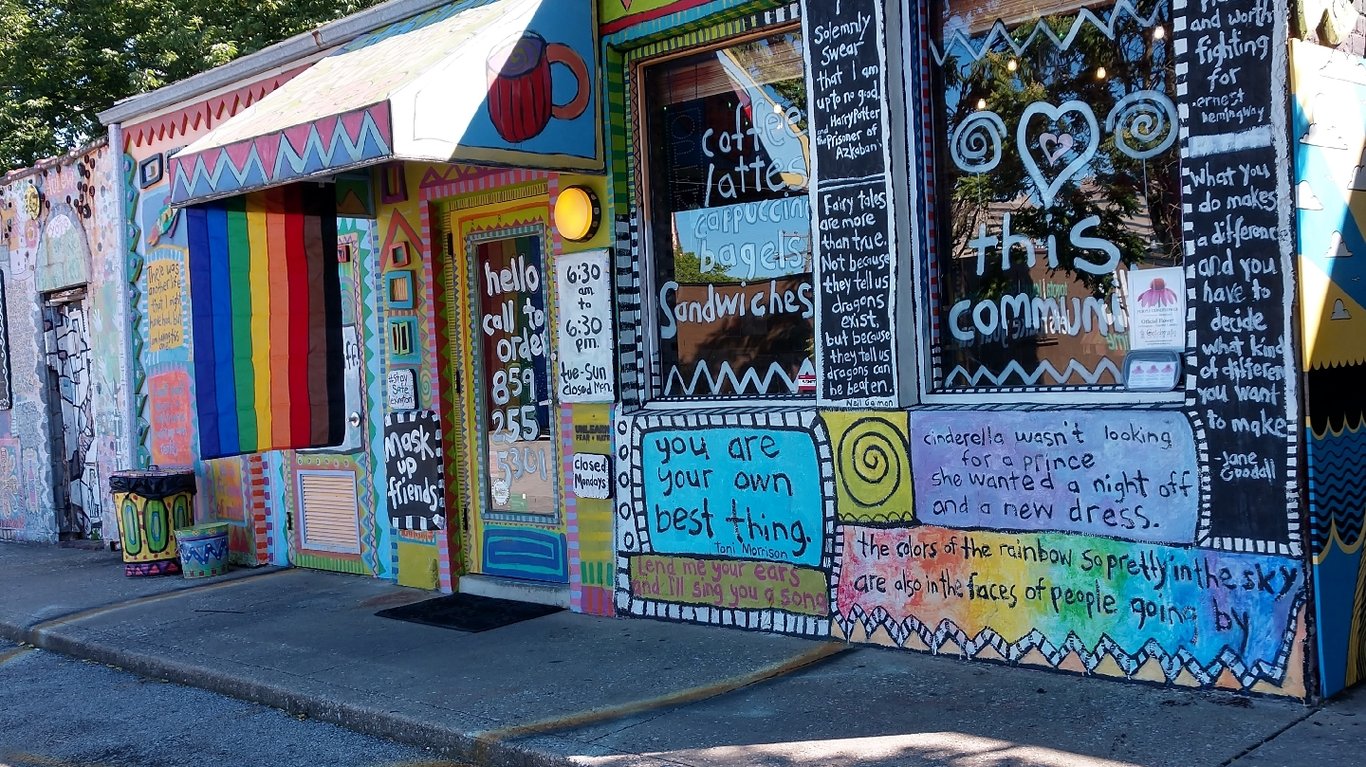 There was
another life
that I might
have had, but
#stay
safe
mask
up
friends
hello
call to
order
859
255
5301
6:30
am
to
6:30
pm.
tue-sun
closed Mon.
UNLEARN
FEAR + HATE
closed
Mondays
coffee
lattes
cappuccino
bagels
Sandwiches
I
Solemnly
Swear
that I am
up to no good.
Harry Potter
and the Prisoner of
Azkaban
Fairy tales
are more
than true.
Not because
they tell us
dragons
exist,
but because
they tell us
dragons
can be
beaten.
Neil Gaiman
this
communi
Official Flower
and worth
fighting
for
ernest
hemingway
What you
do makes
a difference
and you
have to
decide
what kind
of differen
you want
to make
-Jane
Goodall
you are
your own
best thing.
Toni Morrison
Lend me your ears
and I'll sing you a song
cinderella wasn't looking
for a prince
she wanted a night off
and a new dress.
the colors of the rainbow so pretty in the sky
are also in the faces of people going by